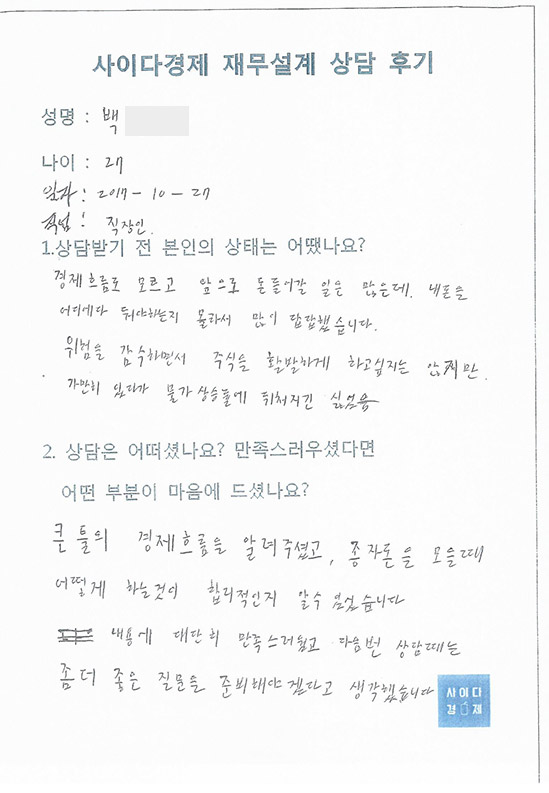 사이다경제 재무설계 상담 후기
성명 : 백
나이 : 27
일자 : 2017-10-27
직업 : 직장인.
1.상담받기 전 본인의 상태는 어땠나요?
경제흐름도 모르고 앞으로 돈들어갈 일은 많은데, 내돈을
어디에다 둬야하는지 몰라서 많이 답답했습니다.
위험을 감수하면서 주식을 활발하게 하고싶지는 않지만.
가만히 있다가 물가상승률에 뒤쳐지긴 싫었음
2. 상담은 어떠셨나요? 만족스러우셨다면
어떤 부분이 마음에 드셨나요?
큰 틀의 경제흐름을 알려주셨고, 종자돈을 모을때
어떻게 하는것이 합리적인지 알수 있었습니다
내용에 대단히 만족스러웠고 다음번 상담때는
좀더 좋은 질문을 준비해야겠다고 생각했습니다
사이다
경제